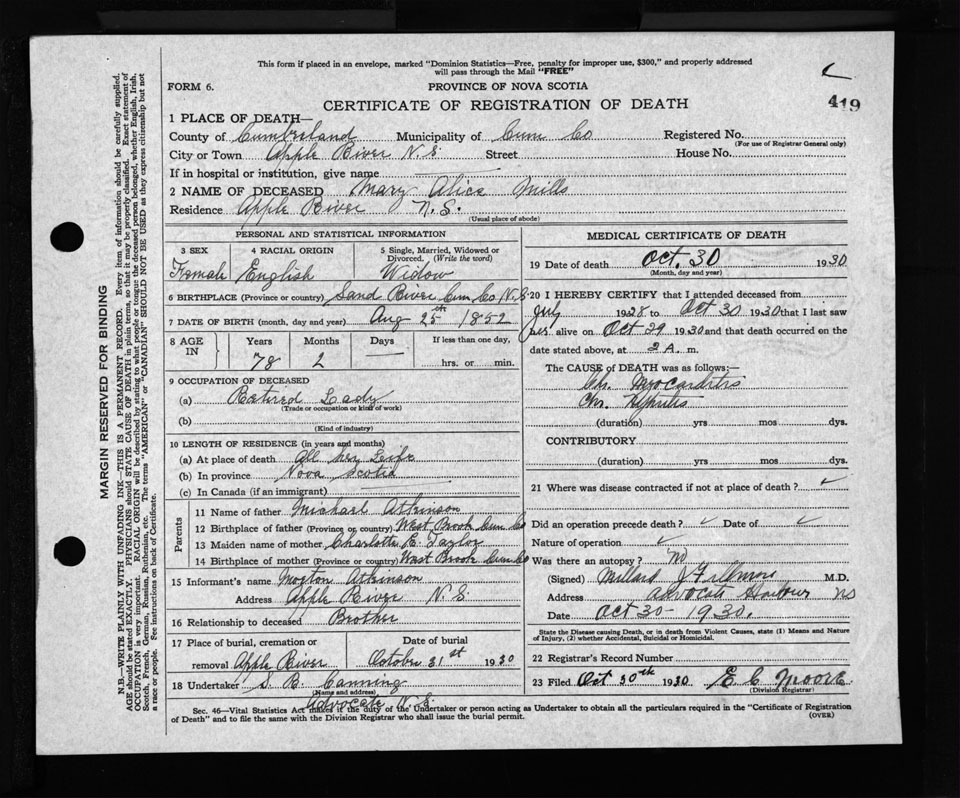 This form if placed in an envelope, marked "Dominion Statistics—Free, penalty for improper use, $300," and properly addressed
will pass through the Mail "FREE"
FORM 6.
PROVINCE OF NOVA SCOTIA
CERTIFICATE OF REGISTRATION OF DEATH
419
1 PLACE OF DEATH—
County of Cumberland Municipality of Cum Co Registered No.
(For use of Registrar General only)
City or Town Apple River N.S Street House No.
If in hospital or institution, give name
2 NAME OF DECEASED Mary Alice Mills
Residence Apple River N.S.
(Usual place of abode)
PERSONAL AND STATISTICAL INFORMATION
3 SEX 4 RACIAL ORIGIN 5 Single, Married, Widowed or Divorced. (Write the word)
Female English Widow
6 BIRTHPLACE (Province or country) Sand River Cum Co N.S
7 DATE OF BIRTH (month, day and year) Aug 25th 1852
8 AGE IN Years Months Days If less than one day,
78 2 — hrs. or min.
9 OCCUPATION OF DECEASED
(a) Retired Lady
(Trade or occupation or kind of work)
(b)
(Kind of industry)
10 LENGTH OF RESIDENCE (in years and months)
(a) At place of death All her Life
(b) In province Nova Scotia
(c) In Canada (if an immigrant)
Parents
11 Name of father Michael Atkinson
12 Birthplace of father (Province or country) West Brook Cum Co
13 Maiden name of mother Charlotte E. Taylor
14 Birthplace of mother (Province or country) West Brook Cum Co
15 Informant's name Morton Atkinson
Address Apple River N.S.
16 Relationship to deceased Brother
17 Place of burial, cremation or removal Apple River
Date of burial
October 31st 1930
18 Undertaker S. B. Canning
(Name and address)
Advocate N.S.
MEDICAL CERTIFICATE OF DEATH
19 Date of death Oct. 30 1930
(Month, day and year)
20 I HEREBY CERTIFY that I attended deceased from
July 1928 to Oct 30 1930 that I last saw
her alive on Oct 29 1930 and that death occurred on the
date stated above, at 2 A. m.
The CAUSE of DEATH was as follows:—
Chr. Myocarditis
Chr. Nephritis
(duration) yrs mos dys.
CONTRIBUTORY
(duration) yrs mos dys.
21 Where was disease contracted if not at place of death?
Did an operation precede death? Date of
Nature of operation
Was there an autopsy? No
(Signed) Millard J Fillmore M.D.
Address Advocate Harbour NS
Date Oct 30 - 1930.
State the Disease causing Death, or in death from Violent Causes, state (1) Means and Nature
of Injury, (2) whether Accidental, Suicidal or Homicidal.
22 Registrar's Record Number
23 Filed Oct 30th 1930 E C Moore
(Division Registrar)
Sec. 46—Vital Statistics Act makes it the duty of the Undertaker or person acting as Undertaker to obtain all the particulars required in the "Certificate of Registration
of Death" and to file the same with the Division Registrar who shall issue the burial permit.
(OVER)
MARGIN RESERVED FOR BINDING
N.B.—WRITE PLAINLY WITH UNFADING INK—THIS IS A PERMANENT RECORD. Every item of information should be carefully supplied.
AGE should be stated EXACTLY. PHYSICIANS should STATE CAUSE OF DEATH in plain terms, so that it may be properly classified. Exact statement of
OCCUPATION is very important. RACIAL ORIGIN will be described by stating to what people or tongue the deceased person belonged, whether English, Irish,
Scotch, French, German, Russian, Ruthenian, etc. The terms "AMERICAN" or "CANADIAN" SHOULD NOT BE USED as they express citizenship but not
a race or people. See instructions on back of Certificate.